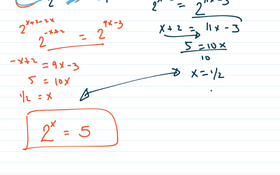 2^(x+2-2x)
2^(-x+2) = 2^(9x-3)
-x+2 = 9x-3
5 = 10x
1/2 = x
2^x = 5
= 2^(11x-3)
x+2 = 11x-3
5 = 10x
10
x = 1/2